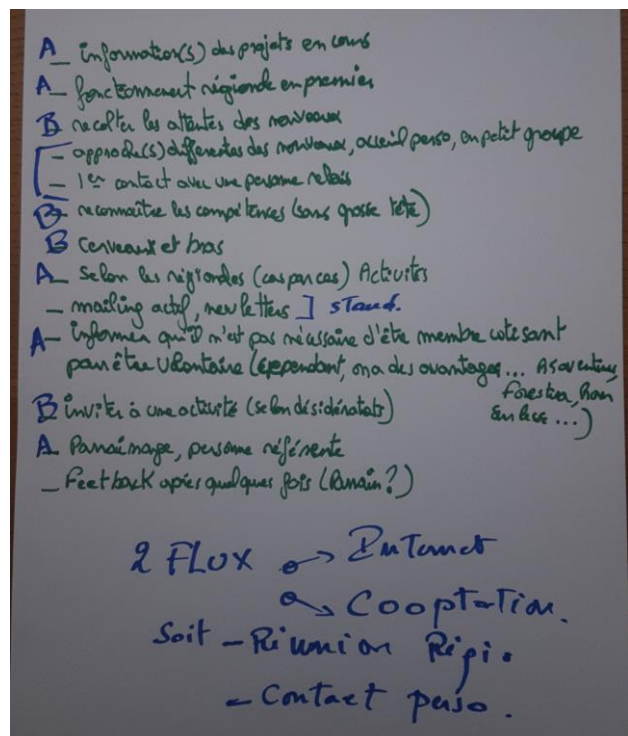 A_ information(s) des projets en cours
A_ fonctionnement régionale en premier
B récolter les attentes des nouveaux
- approche(s) differentes des nouveaux, acceuil perso, en petit groupe
- 1er contact avec une personne relais
B- reconnaître les compétences (sans grosse tête)
B Cerveaux et bras
A_ Selon les régionales (cas par cas) Activités
- mailing actif, newletters ] stand.
A- informer qu'il n'est pas nécessaire d'être membre cotisant
pour être volontaire (cependant, on a des avantages...
B inviter à une activité (selon désidératas)
A_ Parrainage, personne référente
_ Feetback après quelques fois (Parrain?)
2 FLUX → Internet
→ Cooptation.
Soit - Réunion Régi.
- Contact perso.